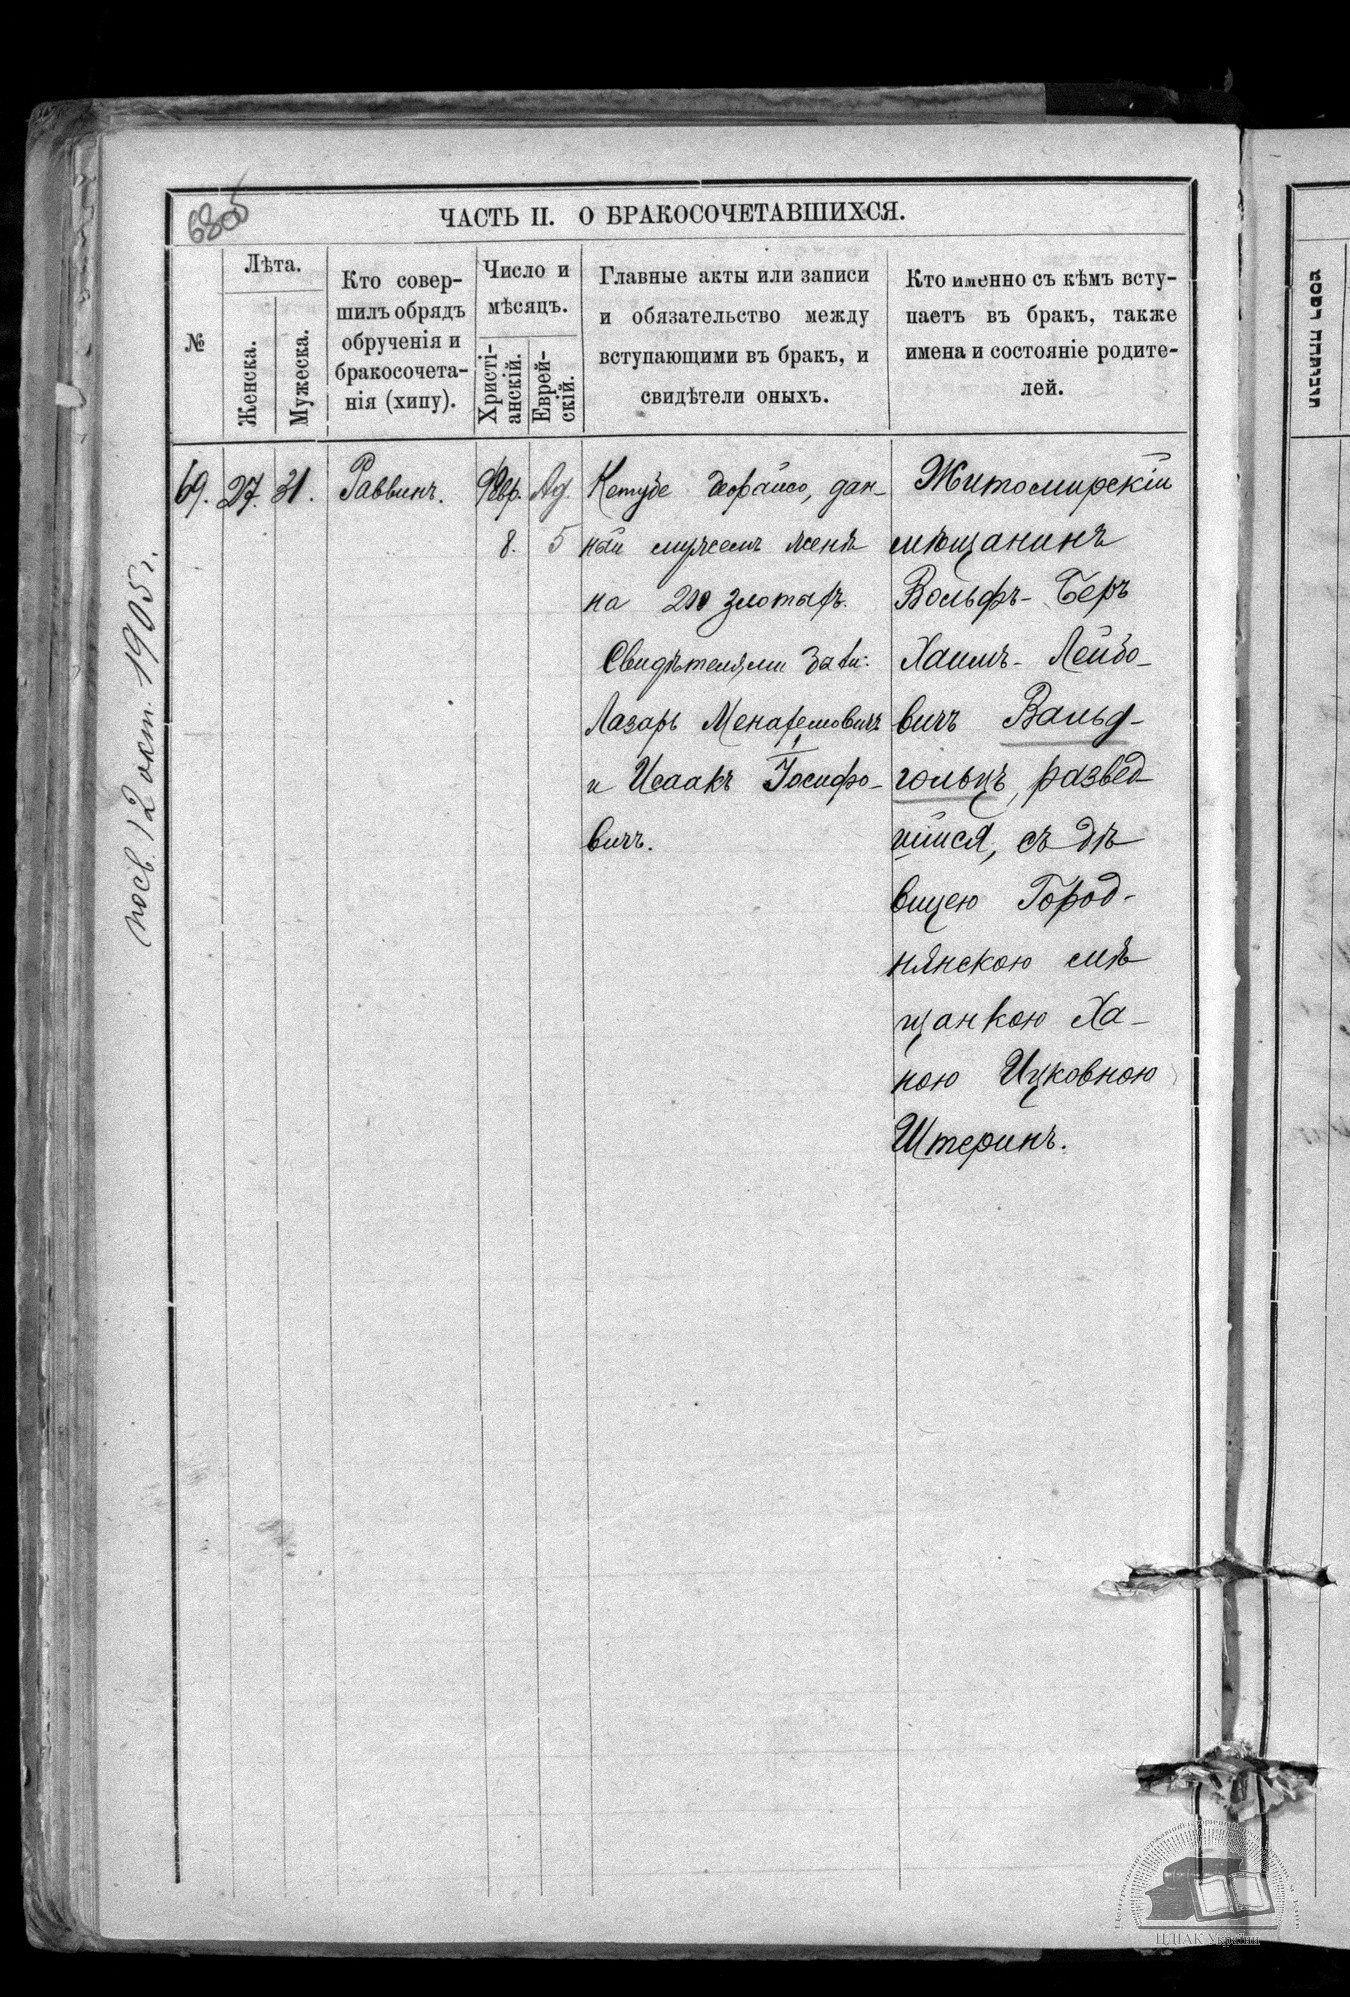 ЧАСТЬ II. О БРАКОСОЧЕТАВШИХСЯ.
№
Лѣта.
Женска.
Мужеска.
Кто совер-
шилъ обрядъ
обрученія и
бракосочета-
нія (хипу).
Число и
мѣсяцъ.
Христі-
анскій.
Еврей-
скій.
Главные акты или записи
и обязательство между
вступающими въ бракъ, и
свидѣтели оныхъ.
Кто именно съ кѣмъ всту-
паетъ въ бракъ, также
имена и состояніе родите-
лей.
69. 27. 31. Раввинъ.
Февр.
8.
Ад.
5
Кетубе дорайсо, дан-
ный мужемъ женѣ
на 200 злотыхъ.
Свидѣтелями
Лазарь Менахемовичъ
и Исаакъ Іосифо-
вичъ.
Житомирскій
мѣщанинъ
Вольфъ-Беръ
Хаимъ-Лейбо-
вичъ Вальд-
гольцъ, развед-
шійся, съ дѣ
вицею Город-
нянскою мѣ
щанкою Ха-
ною Ицковною
Штеринъ.
12 окт. 1905 г.
ЦДІАК України